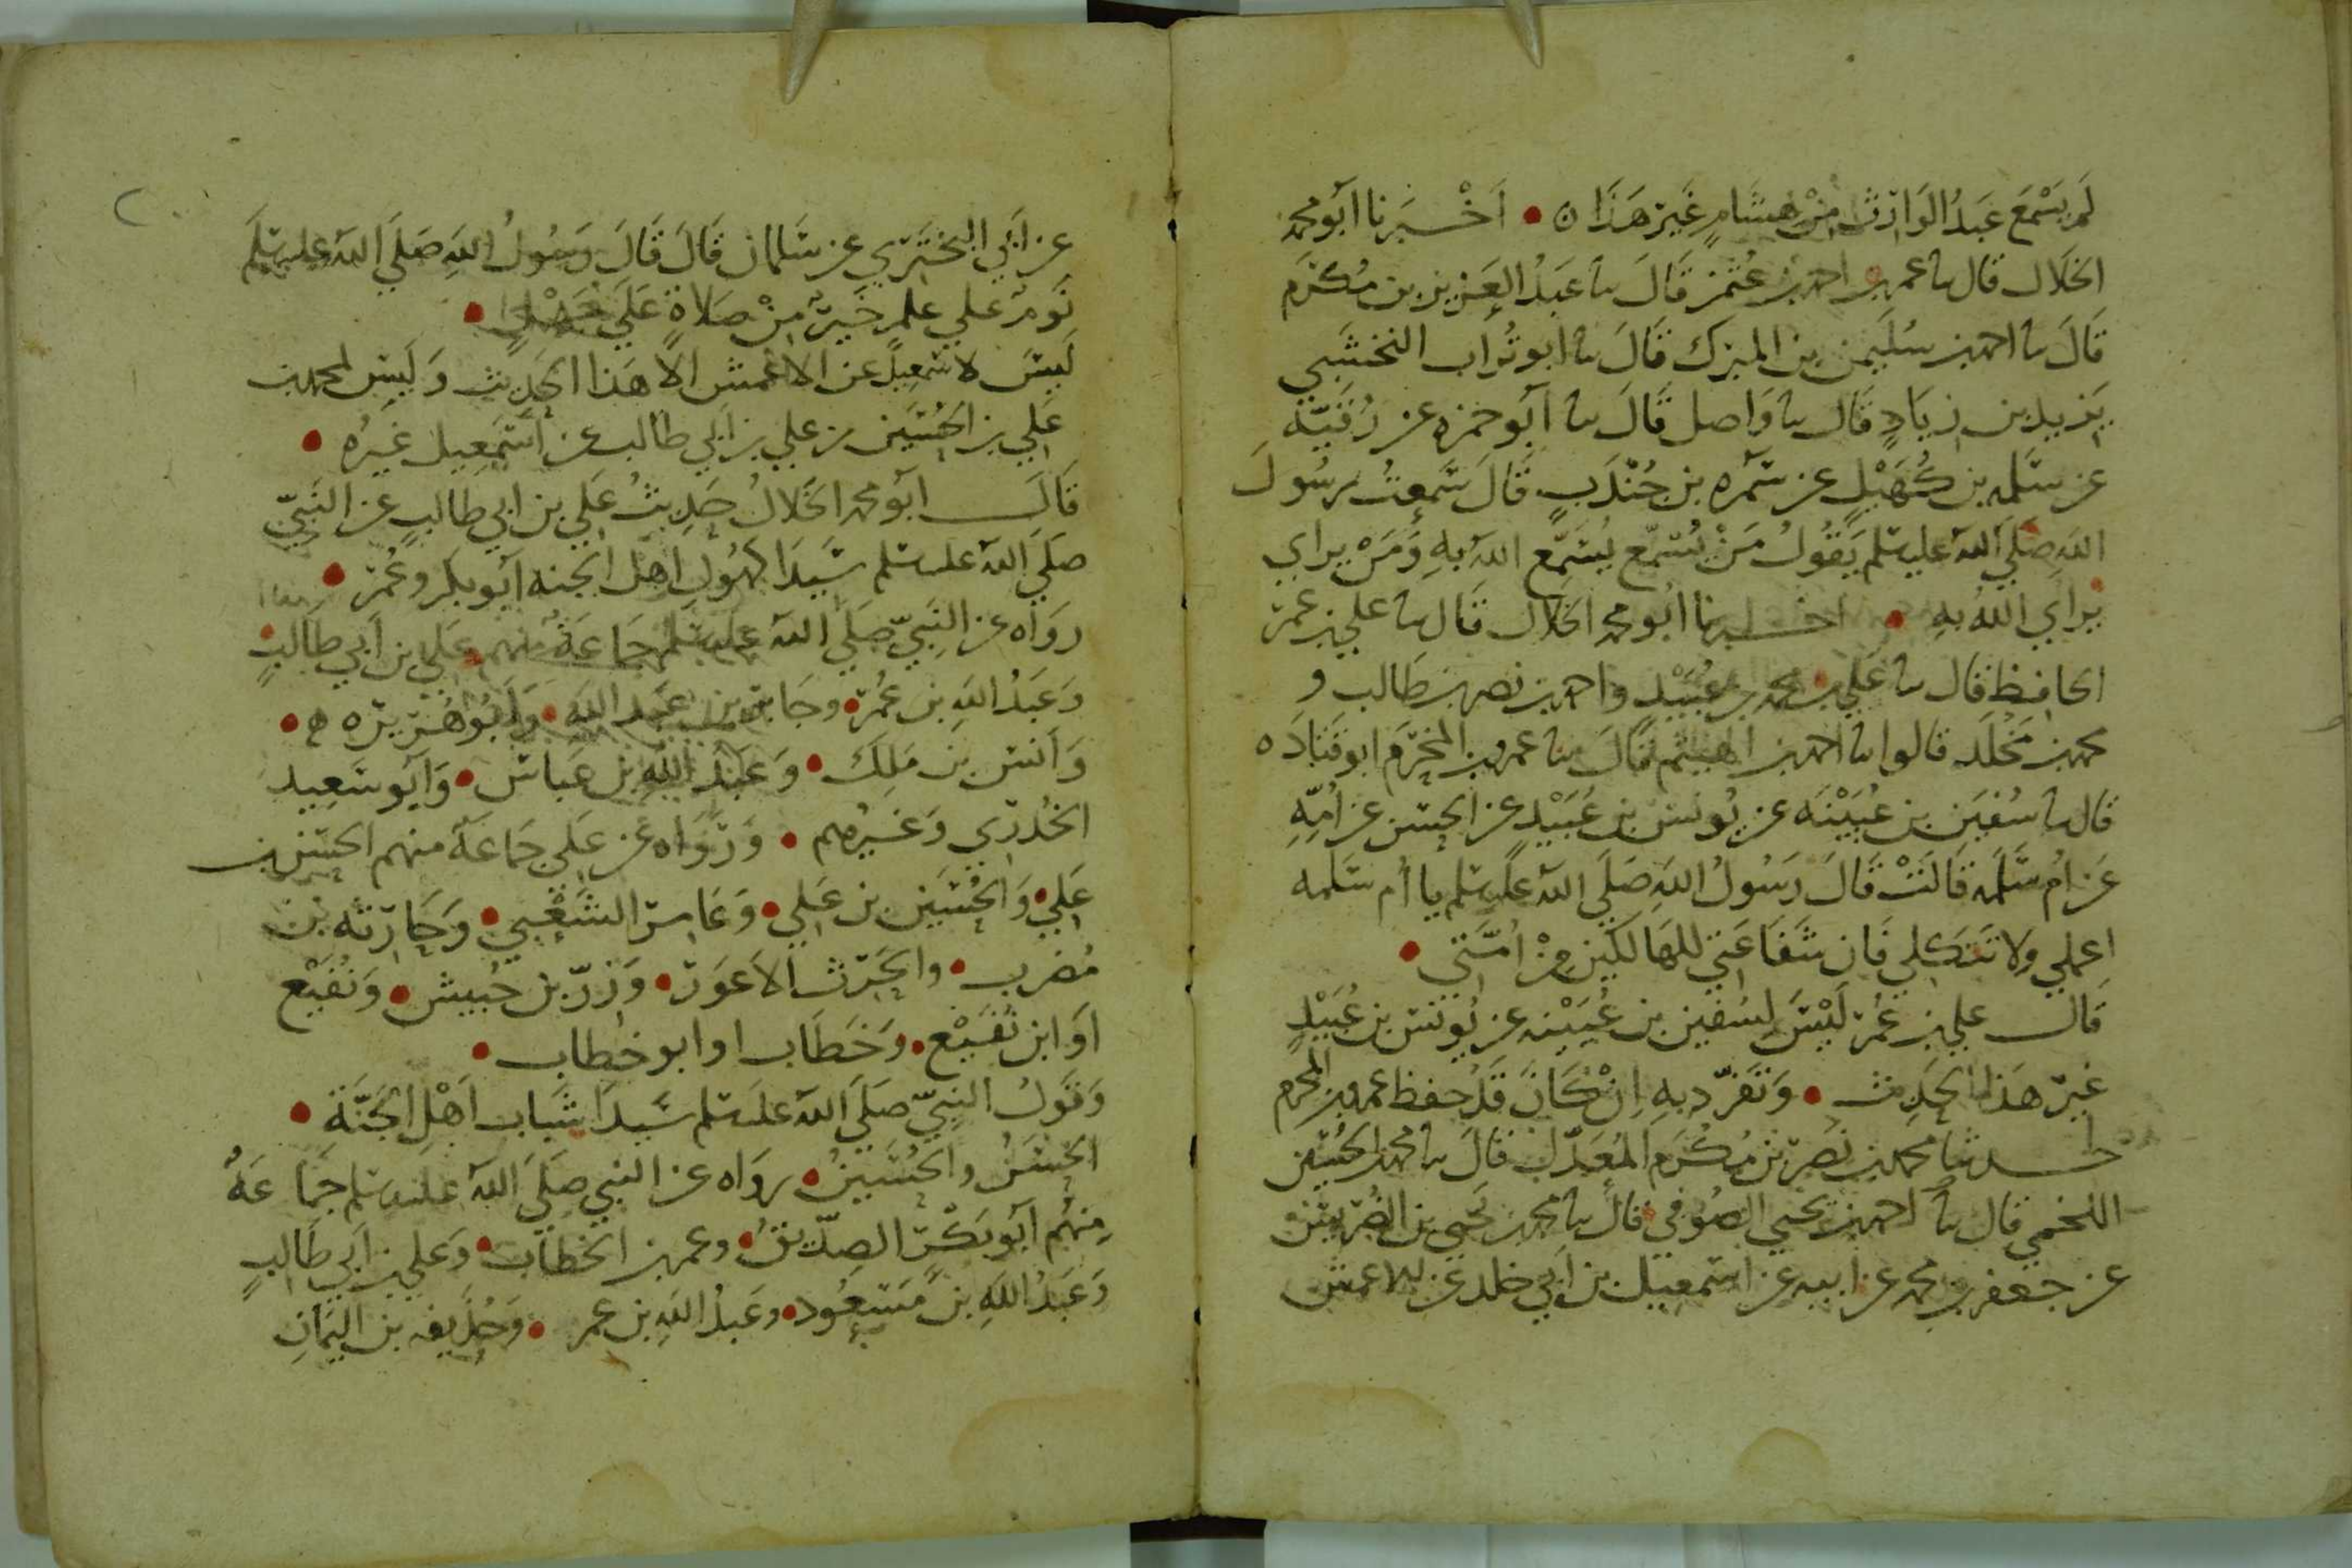 لَم يَسْمَع عَبدُ الوَارِث مِنْ هشَامٍ غَيرَ هَذَا ن • اَخْــبَرنا اَبو محمد
الخَلَال قال ثنا عمر بن احمد بن عُثمٰن قَالَ ثنا عَبدُ العَزيز بن مُكرَم
قَالَ ثنا احمد بن سُلَيمٰن بن المبٰرك قَالَ ثنا ابو تُراب النخشَبي
يَزيد بن زيَادٍ قَال ثنا وَاصل قَالَ ثنا اَبو حمزه عن رُقَيّه
عن سَلمه بن كُهَيْلٍ عن سَمره بن جُندَبٍ قَالَ سَمِعتُ رسُولَ
اللهِ صَلَي الله عليه وسلم يَقُولُ مَنْ يُسَمّع يُسَمِّع اللهُ بِهِ وَمَنْ يراي
يراي اللهُ بهِ • اخــبرنا اَبو محمد الخَلال قَال ثنا علي بن عمر
الحافِظ قال ثنا عَلي بن محمد بن عُبَيْدٍ واحمد بن نصر بن طَالب و
محمد بن مَخلَد قالوا ثنا احمد بن الهيثم قَالَ ثنا عمرو بن المخرَم ابو قتَادَه
قال ثنا سُفيَٰن بن عُيَيْنَه عن يُونسَ بن عُبَيْدٍ عن الحسَن عن اُمِّهِ
عَن اُم سَلَمه قَالَتْ قَالَ رَسُولُ اللهِ صَلَي الله عليه وسلم يا اُم سَلمه
اعملي وَلا تتَكلي فَان شَفَاعَتي للهَالكينَ مِنْ اُمَّتي •
قَال علي بن عُمَر لَيْسَ لِسُفيٰن بن عُيَيْنه عن يُونسَ بن عُبَيْدٍ
غيرَ هَذا الحَدِيث • وَتَفَرّد بهِ اِنْ كَانَ قَد حفظ عمرو بن المخرم
حــدثنا محمد بن نَصر بن مُكرَم المُعَدّل قَالَ ثنا محمد بن الحُسَين
اللخمي قال ثنا احمد بن يحيي الصُوفي قال ثنا محمد بن يَحيي بن الضُرَيس
عن جعفر بن محمد عن ابيه عن اسمعيل بن اَبي خلد عن الاعمش
عن اَبي البَختَري عن سَلمان قَالَ قَالَ رَسُولُ اللهِ صَلَي الله عليه وسلم
نَومٌ علي علمٍ خَيرٌ مِنْ صَلاةٍ عَلَي جَهْلٍ •
لَيسَ لاسمَعِيلَ عن الاعمش الا هَذا الحَدِيث وَلَيسَ لمحمد بن
عَلي بن الحُسَين بن علي بن اَبي طالب عن اسمَعِيل غيرُه •
قَالَ ابَو محمد الخَلالُ حَدِيثُ عَلي بن ابي طالبٍ عن النَبيّ
صَلَي الله عليه وسلم سَيدَا كهُولِ اهل الجنه اَبو بكر وعُمَر •
رَوَاه عن النبيّ صَلي الله عليه وسلم جَمَاعَةٌ مِنهم عَلي بن اَبي طالبٍ
وَعَبدُ اللهِ بن عُمَر • وجَابر بن عَبد اللهِ • وَاَبُو هُرَيرَه ه •
وَاَنسَ بن مٰلِك • وَعَبد اللهِ بن عَباسَ • وَاَبو سَعِيد
الخُدري وَغيرُهم • وَرَوَاه عن عَلي جَمَاعَةٌ منهم الحَسَن بن
عَلي • وَالحُسَين بن عَلي • وَعَامر الشَعْبي • وَحَارثَه بن
مُضرب • والحٰرث الاعوَر • وَزِرّ بن حُبيش • وَنُفَيْع
اَو ابن نُفَيْع • وَخَطَاب او ابو خطاب •
وَقَولُ النَبِيّ صَلَي الله عليه وسلم سَيدَا شَباب اَهْلِ الجَنَّةِ •
الحَسَنُ والحُسَينُ • رواه عن النبي صَلي الله عليه وسلم جَمَاعَةٌ
مِنهُم اَبو بَكر الصدّيقُ • وعمر بن الخطاب • وَعلي بن اَبي طَالبٍ
وَعَبدُ اللهِ بن مَسعُود • وعَبدُ اللهِ بن عمر • وَحُذَيفه بن اليَمَانِ